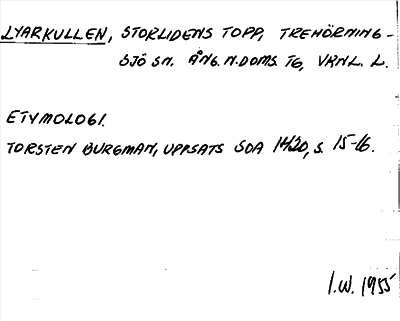 LYARKULLEN, STORLIDENS TOPP, TREHÖRNING-
SJÖ SN. ÅNG. N. DOMS. TG, VRNL. L.
ETYMOLOGI.
TORSTEN BURGMAN, UPPSATS SOA 1420, S. 15-16.
I.W. 1955